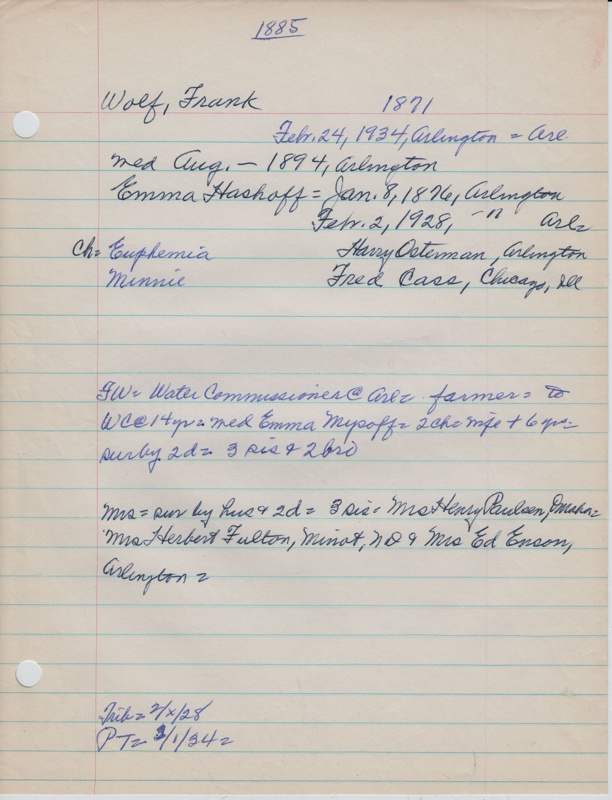 1885
Wolf, Frank 1871
Febr. 24, 1934, Arlington = Arl
med Aug. — 1894, Arlington
Emma Hashoff = Jan. 8, 1876, Arlington
Febr. 2, 1928, — " Arl=
Ch= Euphemia Harry Osterman, Arlington
Minnie Fred Cass, Chicago, Ill
FW= Water Commissioner @ Arl= farmer= to
WC@ 14 yr= med Emma = 2 ch= wife + 6 yr=
sur by 2d= 3 sis & 2 bro
Mrs= sur by hus & 2d = 3 sis= Mrs Henry Paulsen, Omaha=
Mrs Herbert Fulton, Minot, ND & Mrs Ed Enson,
Arlington =
Trib= 2/x/28
PT= 3/1/34=